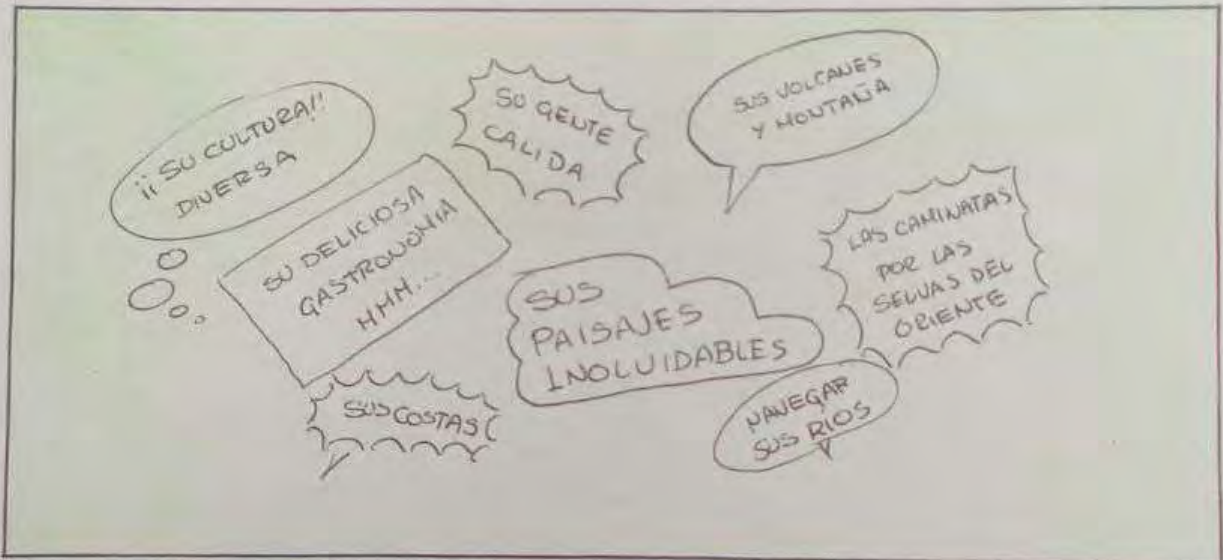 ¡¡SU CULTURA!!
DIVERSA
SU GENTE
CALIDA
SUS VOLCANES
Y MONTAÑA
SU DELICIOSA
GASTRONOMIA
HMM...
SUS
PAISAJES
INOLVIDABLES
LAS CAMINATAS
POR LAS
SELVAS DEL
ORIENTE
SUS COSTAS
NAVEGAR
SUS RIOS